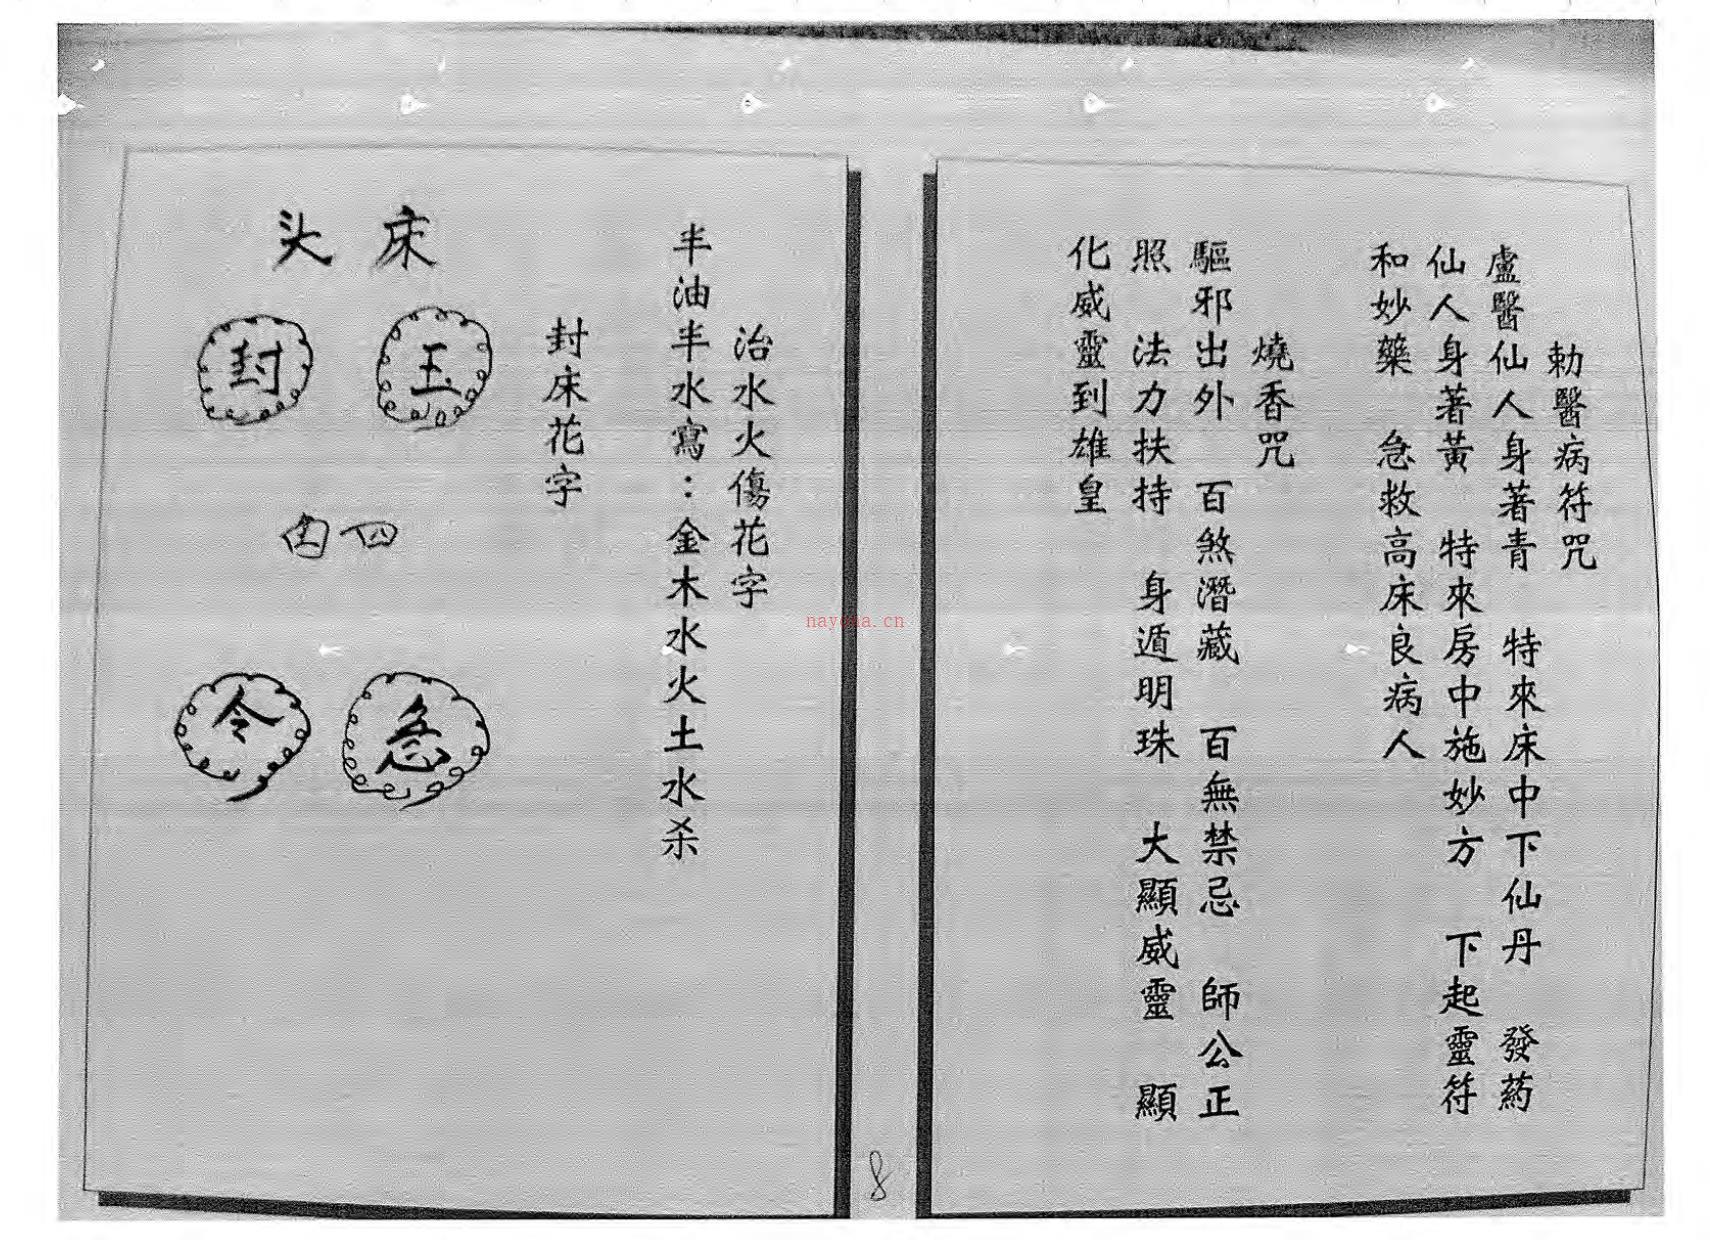 勅醫病符咒
盧醫仙人身著青　特來床中下仙丹　發葯
仙人身著黃　特來房中施妙方　下起靈符
和妙藥　急救高床良病人
燒香咒
驅邪出外　百煞潛藏　百無禁忌　師公正
照　法力扶持　身遁明珠　大顯威靈　顯
化威靈到雄皇
治水火傷花字
半油半水寫：金木水火土水杀
封床花字
床头
玉 封
急 令
8
nayona.cn